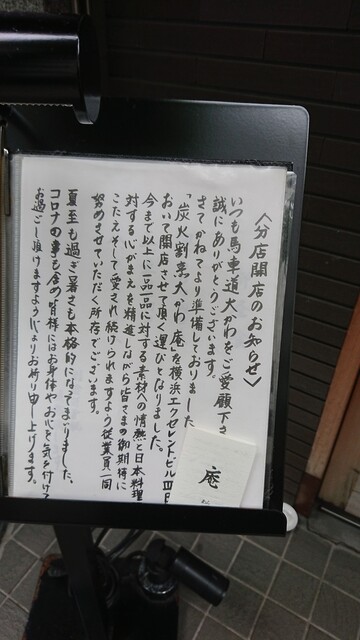 〈分店開店のお知らせ〉
いつも馬車道大かわをご愛顧下さ
誠にありがとうございます。
さてかねてより準備しておりました
「炭火割烹大かわ 庵」を横浜エクセレントビル四F
おいて開店させて頂く運びとなりました。
今まで以上に一品一品に対する素材への情熱と日本料理
対する心がまえを精進しながら皆さまの御期待に
こたえそして愛され続けられますよう従業員一同
努めさせていただく所存でございます。
夏至も過ぎ暑さも本格的になってまいりました。
コロナの事も含め皆様にはお身体やお心を気を付けて
お過ごし頂けますよう心よりお祈り申し上げます。
庵